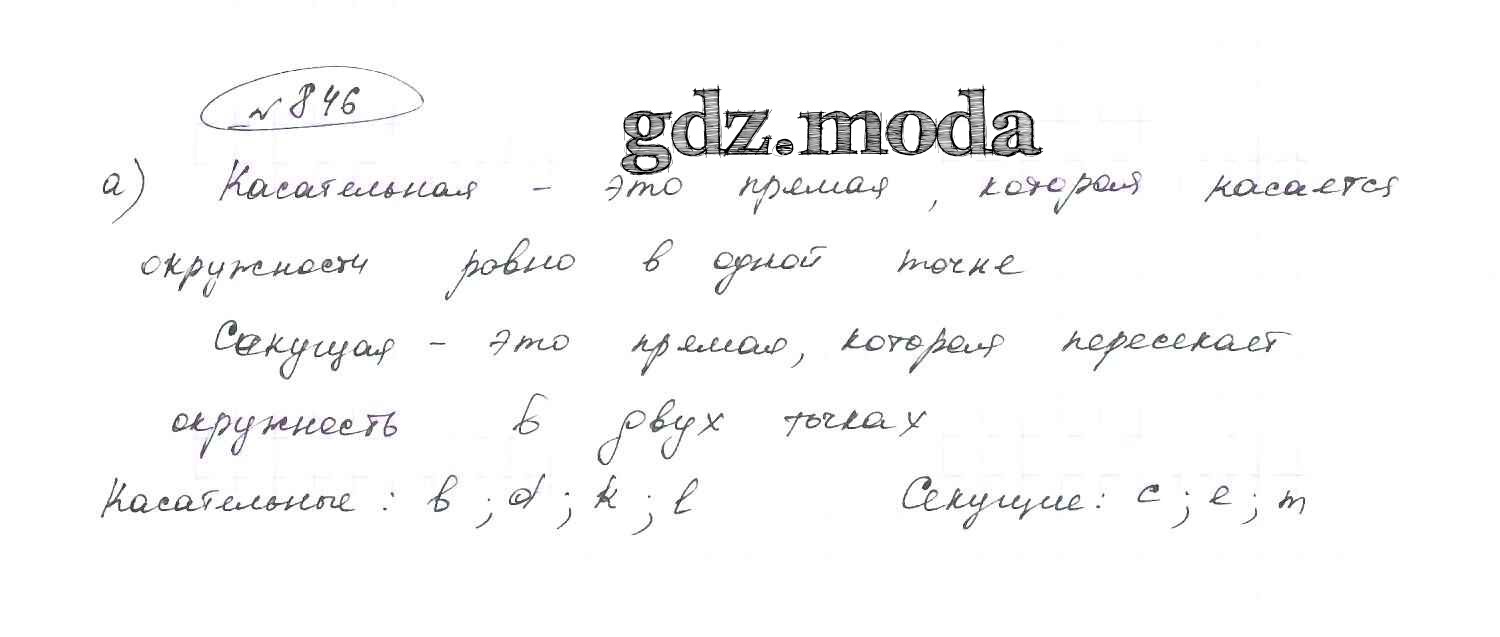 № 846
gdz.moda
а) Касательная - это прямая, которая касается
окружности ровно в одной точке
Секущая - это прямая, которая пересекает
окружность в двух точках
Касательные: b; d; k; l Секущие: c; e; m